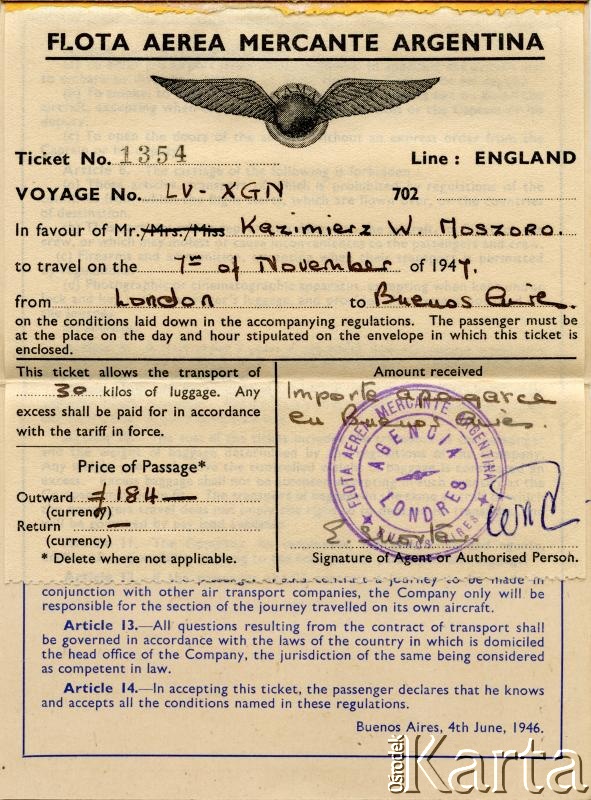 FLOTA AEREA MERCANTE ARGENTINA
FAMA
Ticket No. 1354 Line: ENGLAND
VOYAGE No. LV-XGN 702
In favour of Mr./Mrs./Miss Kazimierz W. Moszoro.
to travel on the 1st of November of 1947.
from London to Buenos Aires.
on the conditions laid down in the accompanying regulations. The passenger must be
at the place on the day and hour stipulated on the envelope in which this ticket is
enclosed.
This ticket allows the transport of
30 kilos of luggage. Any
excess shall be paid for in accordance
with the tariff in force.
Price of Passage*
Outward £184—
(currency)
Return —
(currency)
* Delete where not applicable.
Amount received
Importe a pagarce
en Buenos Aires.
FLOTA AEREA MERCANTE ARGENTINA
AGENCIA
LONDRES
BUENOS AIRES
Signature of Agent or Authorised Person.
conjunction with other air transport companies, the Company only will be
responsible for the section of the journey travelled on its own aircraft.
Article 13.—All questions resulting from the contract of transport shall
be governed in accordance with the laws of the country in which is domiciled
the head office of the Company, the jurisdiction of the same being considered
as competent in law.
Article 14.—In accepting this ticket, the passenger declares that he knows
and accepts all the conditions named in these regulations.
Buenos Aires, 4th June, 1946.
Ośrodek
Karta